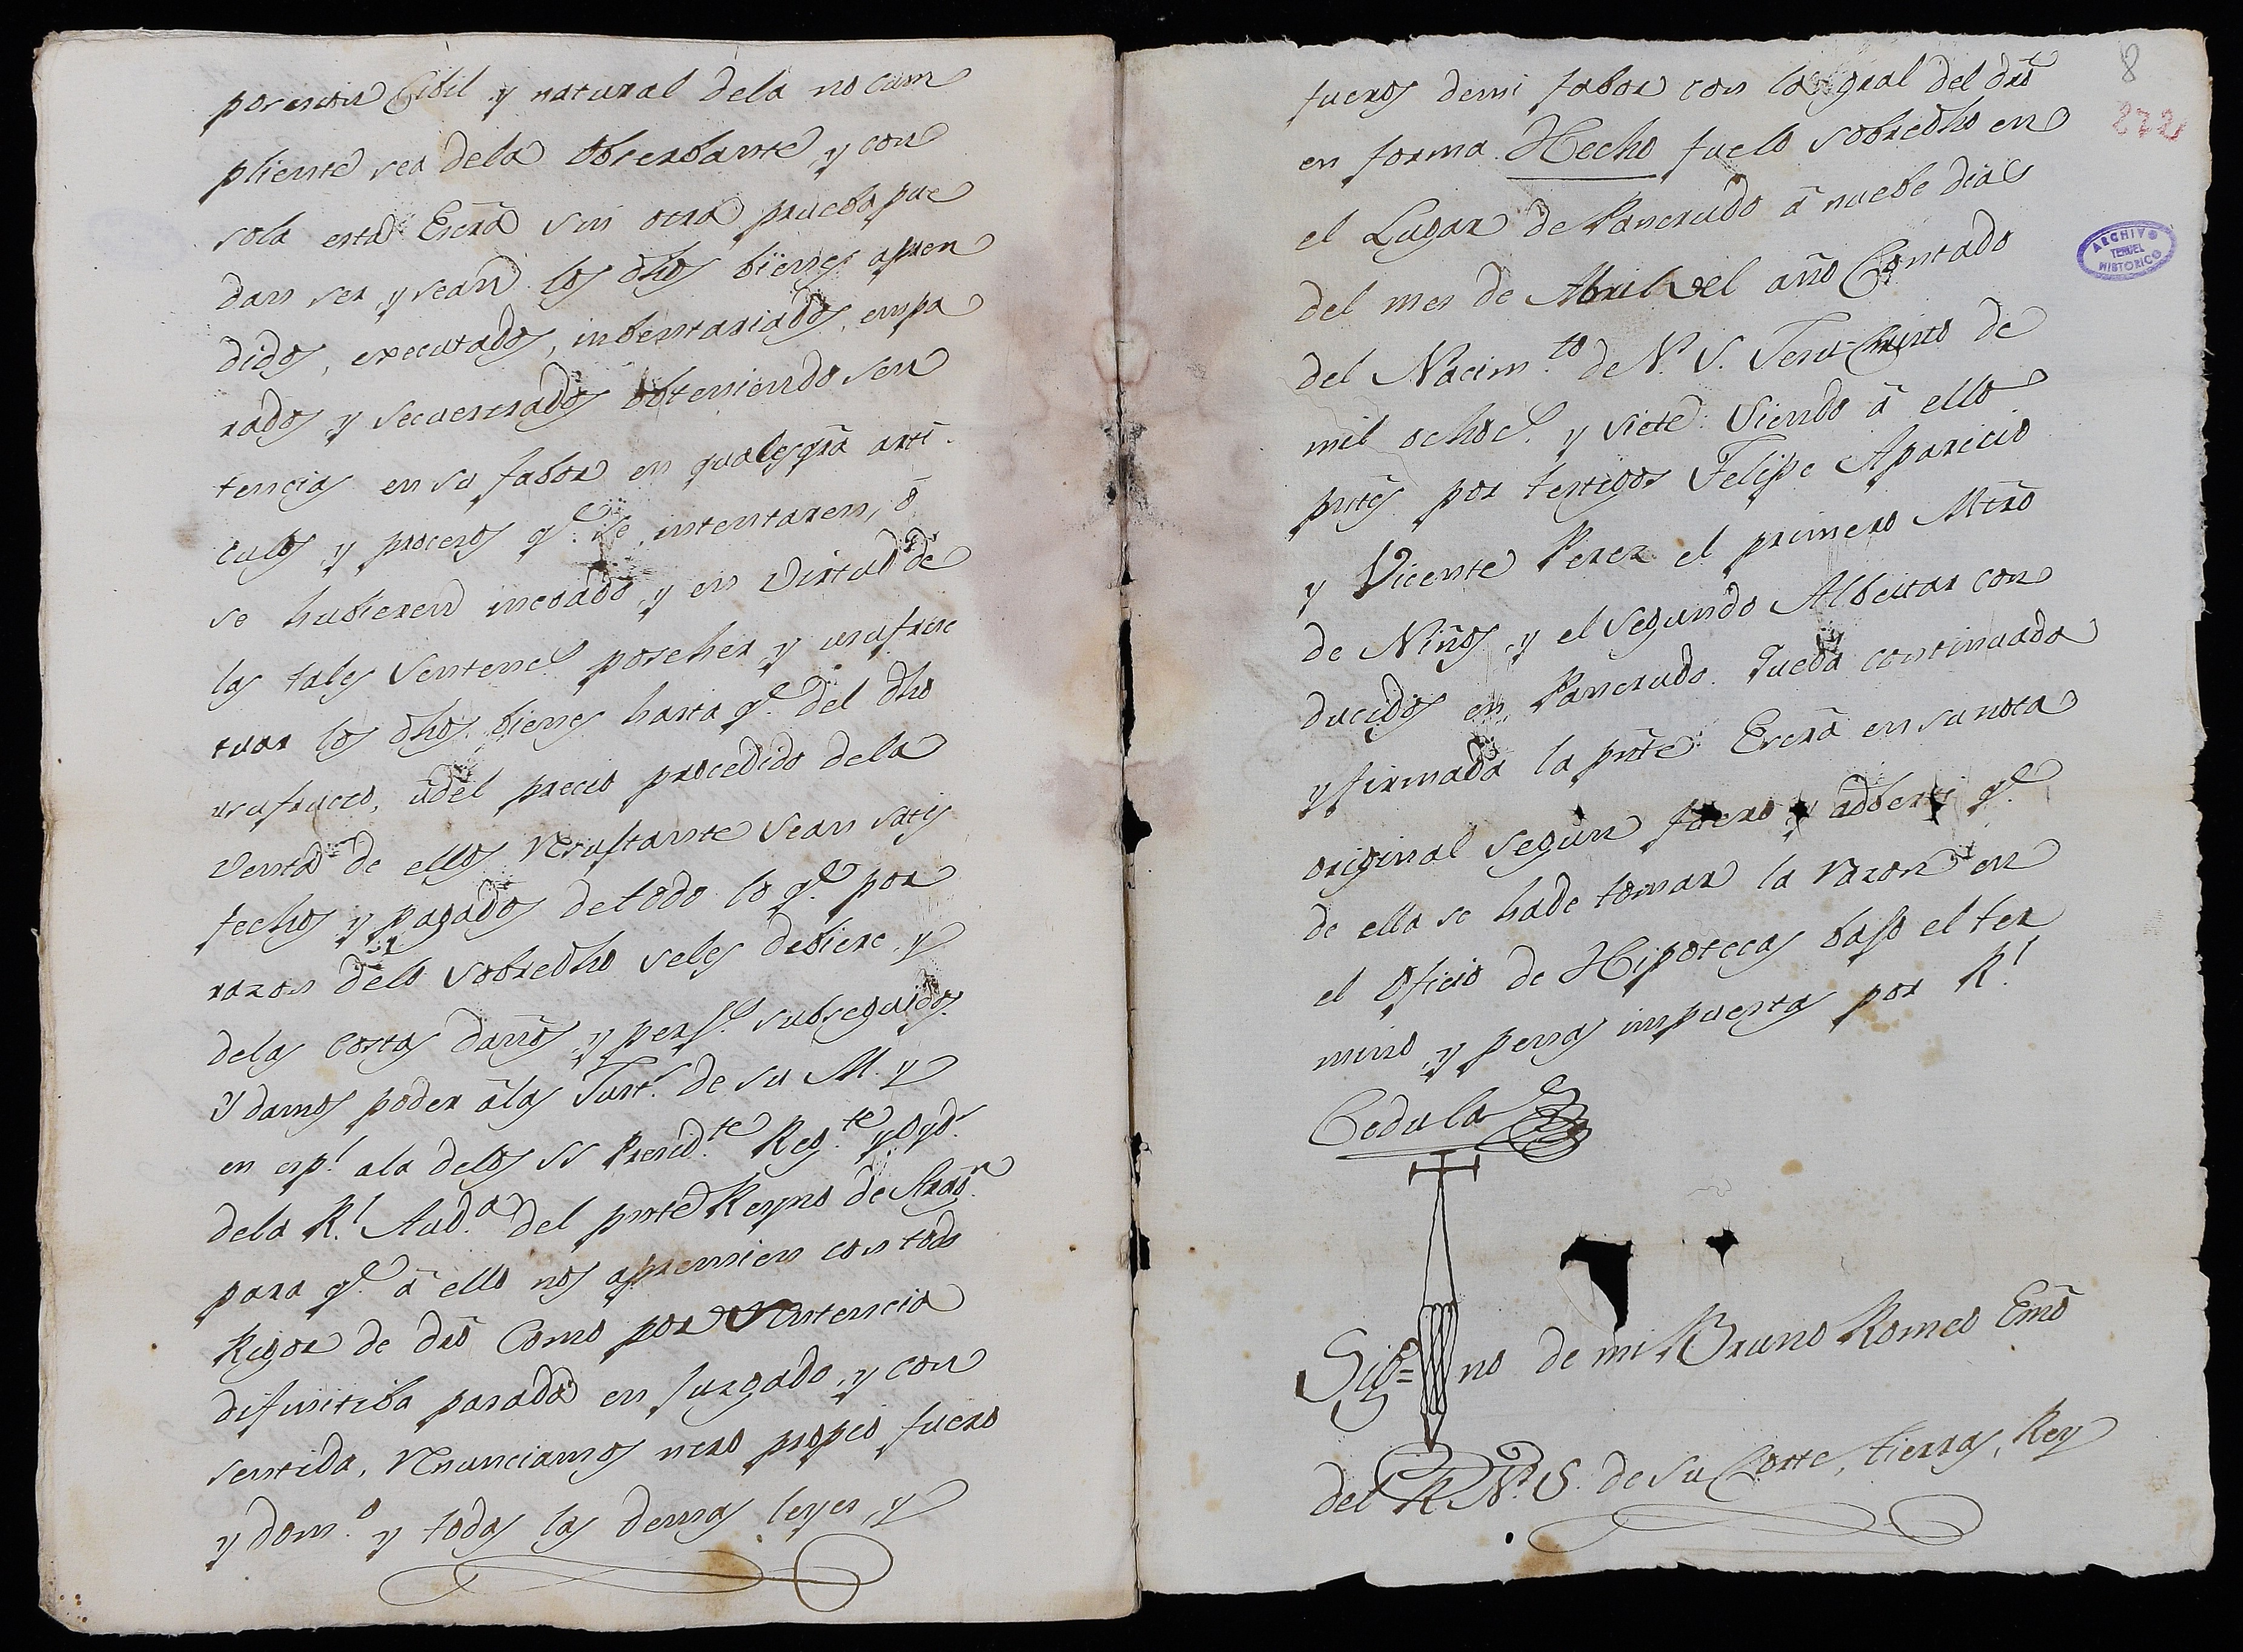 posesion Cibil y natural dela no cum
pliente sea dela Obserbante, y con
sola esta Escrã sin otra prueba pue
dan ser, y sean los dhos bienes apren
didos, executados, inbentariados, empa
rados y secuestrados obteniendo sen
tencias en su fabor en qualesqrã arti
culos y procesos qe. se intentaren, ò
se hubieren incoado, y en Virtud de
las tales Sentenc.s poseher y usufruc
tuar los dhos bienes hasta qe. del dho
usufructo, ù del precio procedido dela
Venta de ellos Resultante sean satis
fechos y pagados de todo lo qe. por
razon delo sobredho seles debiere y
delas Costas daños y perj.s subseguidos.
Y damos poder à las Just.s de su M. y
en esp.l ala delos SS Presid.te Reg.te y Oyd.s
dela R.l Aud.a del pnte Reyno de Aragn.
para qe. à ello nos apremien con todo
Rigor de dro Como por Sentencia
difinitiba pasada en Juzgado, y con
sentida, Renunciamos nro propio fuero
y dom.o y todas las demas leyes, y
8
fueros demi fabor con la gral del dro
en forma. Hecho fuelo sobredho en
el Lugar de Pancrudo à nuebe dias
del mes de Abril del año Contado
del Nacim.to de N. S. Jesu-Christo de
mil ochoc.s y siete. Siendo à ello
pntes por testigos Felipe Aparicio
y Vicente Perez el primero Mtro
de Niños, y el segundo Albeitar con
ducidos en Pancrudo. Queda continuada
y firmada la pnte Escrã en su nota
original segun fuero y adbertí qe.
de ella se hade tomar la razon en
el Oficio de Hipotecas bajo el ter
mino, y penas impuestas por R.l
Cedula
Sig=no de mi Bruno Romeo Esno
del R. N. S. de su Corte, tierras, Rey
ARCHIVO
TERUEL
HISTORICO